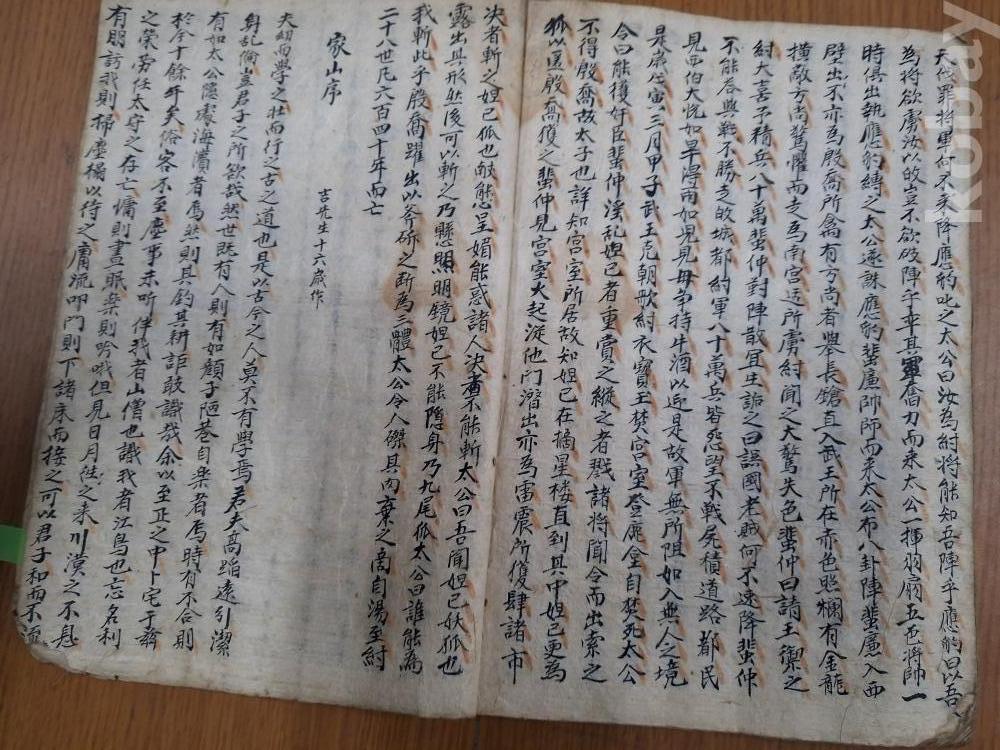 天伐罪將軍何不來降應豹叱之太公曰汝爲紂將能知吾陣乎應豹曰以吾
爲將欲虜汝以故豈不欲破陣乎率其軍奮力而來太公一揮羽扇五色將帥一
時俱出執應豹縛之太公遂誅應豹蜚廉帥師而來太公布八卦陣蜚廉入西
壁出不亦爲殷喬所禽有方尚者擧長鎗直入武王所在赤色照爛有金龍
橫敵方尚驚懼而走爲南宮适所虜紂聞之大驚失色蜚仲曰請王禦之
紂大喜予精兵八十萬蜚仲對陣散宜生詬之曰誤國老賊何不速降蜚仲
不能答與戰不勝走故城都約軍八十萬兵皆怨望不戰尸積道路都民
見西伯大悅如旱得雨如兒見母爭持牛酒以迎是故軍無所阻如入無人之境
是歲戊寅三月甲子武王克朝歌紂衣寶玉焚宮室登鹿坮自焚死太公
令曰能獲奸臣蜚仲淫乱妲己者重賞之縱之者戮諸將聞令而出索之
不得殷喬故太子也詳知宮室所居故知妲己在摘星楼直到其中妲己更爲
狐以還殷喬獲之蜚仲見宮室火起從他門潛出亦爲雷震所獲肆諸市
決者斬之妲己狐也故能呈媚能惑諸人決者不能斬太公曰吾聞妲己妖狐也
露出其形然後可以斬之乃懸照明鏡妲己不能隱身乃九尾狐太公曰誰能爲
我斬此乎殷喬躍出以斧斫之断爲三體太公令人磔其肉棄之啇自湯至紂
二十八世凡六百四十年而亡
家山序
吉先生十六歲作
夫幼而學之壯而行之古之道也是以古今之人莫不有學焉若夫高蹈遠引潔
身乱倫豈君子之所欲哉然世既有人則有如顏子陋巷自樂者焉時有不合則
有如太公隱處海濱者焉然則其釣其耕詎鼓識哉余以至正之中卜宅于
於今十餘年矣俗客不至塵事未听伴我者山僧也識我者江鳥也忘名利
之榮劳任太守之存亡慵則晝眠樂則吟哦但見日月任之來川漠之不息
有朋訪我則掃塵榻以待之庸流叩門則下諸床而接之可以君子和而不流